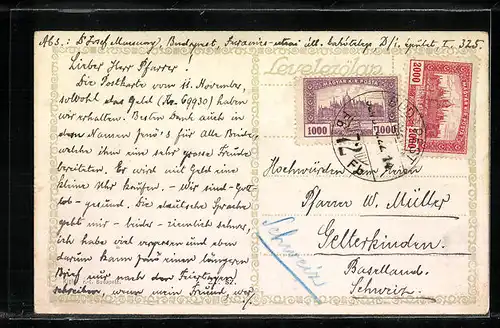 Abs.: Dr Josef Budapest utcai áll. D/i. épület I. 325.
Levelezőlap
Lieber Herr Pfarrer!
Die Postkarte vom 11. November,
sowohl das Geld (Kr. 69930) haben
wir erhalten. Besten Dank auch in
dem Namen für Alle Beide,
welche ihm eine sehr grosse Freude
bereiteten. Er wird auf Geld eine
kleine Uhr kaufen. - Wir sind - Gott-
lob - gesund. Die deutsche Sprache
geht mir - leider - ziemlich schwer,
ich habe viel vergessen und eben
darum kann einen längeren
Brief nur nach den Feiertagen
schreiben, wenn mein Freund, wer
MAGYAR KIR. POSTA
1000 1000
MAGYAR KIR. POSTA
2000 2000
Hochwürden Herrn
Pfarrer W. Müller
Gelterkinden.
Baselland.
Schweiz.
Schweiz